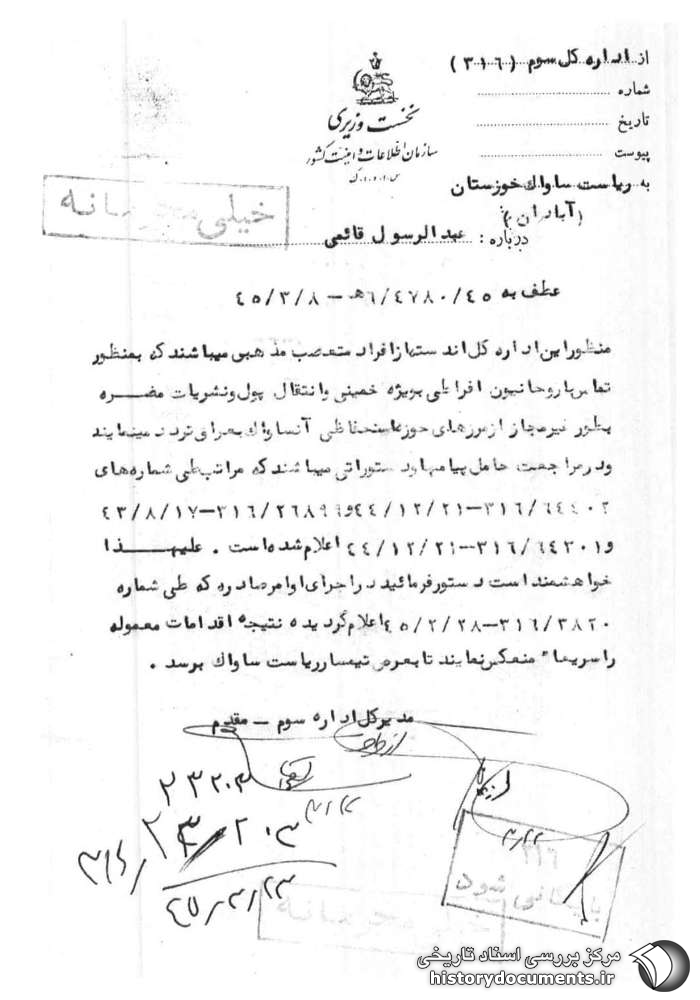 از اداره کل سوم (۳۱۶)
شماره
تاریخ
پیوست
نخست وزیری
سازمان اطلاعات و امنیت کشور
س.ا.و.ا.ک
به ریاست ساواک خوزستان
(آبادان)
خیلی محرمانه
درباره: عبدالرسول قائمی
عطف به ۶/۴۷۸۰/۴۵ه‍ – ۴۵/۳/۸
منظور این اداره کل اندسته از افراد متعصب مذهبی میباشند که بمنظور
تماس با روحانیون افراطی بویژه خمینی و انتقال پول و نشریات مضره
بطور غیرمجاز از مرزهای حوزه استحفاظی آنساواک بعراق تردد مینمایند
و در مراجعت حامل پیامها و دستوراتی میباشند که مراتب طی شماره‌های
۳۱۶/۶۴۴۰۲–۴۴/۱۲/۲۱ و ۳۱۶/۲۶۸۹۹–۴۳/۸/۱۷
و ۳۱۶/۶۴۳۰۱–۴۴/۱۲/۲۱ اعلام شده است . علیهذا
خواهشمند است دستور فرمائید در اجرای اوامر صادره که طی شماره
۳۱۶/۳۸۲۰–۴۵/۲/۲۸ اعلام گردیده نتیجه اقدامات معموله
را سریعا" منعکس نمایند تا بعرض تیمسار ریاست ساواک برسد .
مدیر کل اداره سوم – مقدم
۲۳۲۰۳
۲۳۲۰۳
۳۱۶
۴۵/۳/۲۳
۳/۲۲
۳۱۶
بایگانی شود
مرکز بررسی اسناد تاریخی
historydocuments.ir